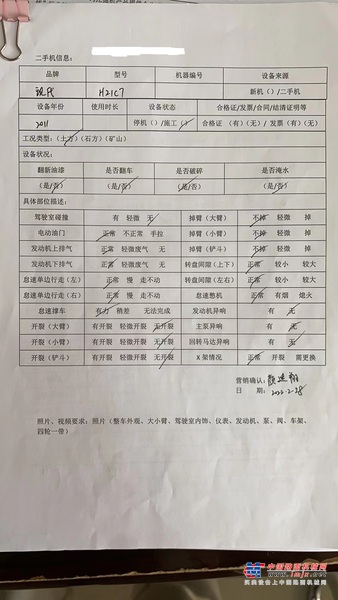 二手机信息:
品牌 型号 机器编号 设备来源
现代 H21C7 新机()/二手机
设备年份 使用时长 设备状态 合格证/发票/合同/结清证明等
2011 停机()/施工() 合格证 (有)(无) / 发票 (有)(无)
工况类型: (土方)(石方)(矿山)
设备状况:
翻新油漆 是否翻车 是否破碎 是否淹水
(是/否) (是/否) (是/否) (是/否)
具体部位描述:
驾驶室碰撞 有 轻微 无 掉臂(大臂) 不掉 轻微 掉
电动油门 正常 不正常 手拉 掉臂(小臂) 不掉 轻微 掉
发动机上排气 正常 轻微废气 无 掉臂(铲斗) 不掉 轻微 掉
发动机下排气 正常 轻微废气 无 转盘间隙(上下) 正常 较小 较大
怠速单边行走(左) 正常 慢 走不动 转盘间隙(左右) 正常 较小 较大
怠速单边行走(右) 正常 慢 走不动 怠速整机 正常 有烟 熄火
怠速撑车 有力 稍差 无法完成 发动机异响 有 无
开裂(大臂) 有开裂 轻微开裂 无开裂 主泵异响 有 无
开裂(小臂) 有开裂 轻微开裂 无开裂 回转马达异响 有 无
开裂(铲斗) 有开裂 轻微开裂 无开裂 X架情况 正常 开裂 需更换
营销确认:
日 期: 2022-2-28
照片、视频要求: 照片(整车外观、大小臂、驾驶室内饰、仪表、发动机、泵、阀、车架、
四轮一带)
中国路面机械网
www.lmjx.net
买卖设备上中国路面机械网